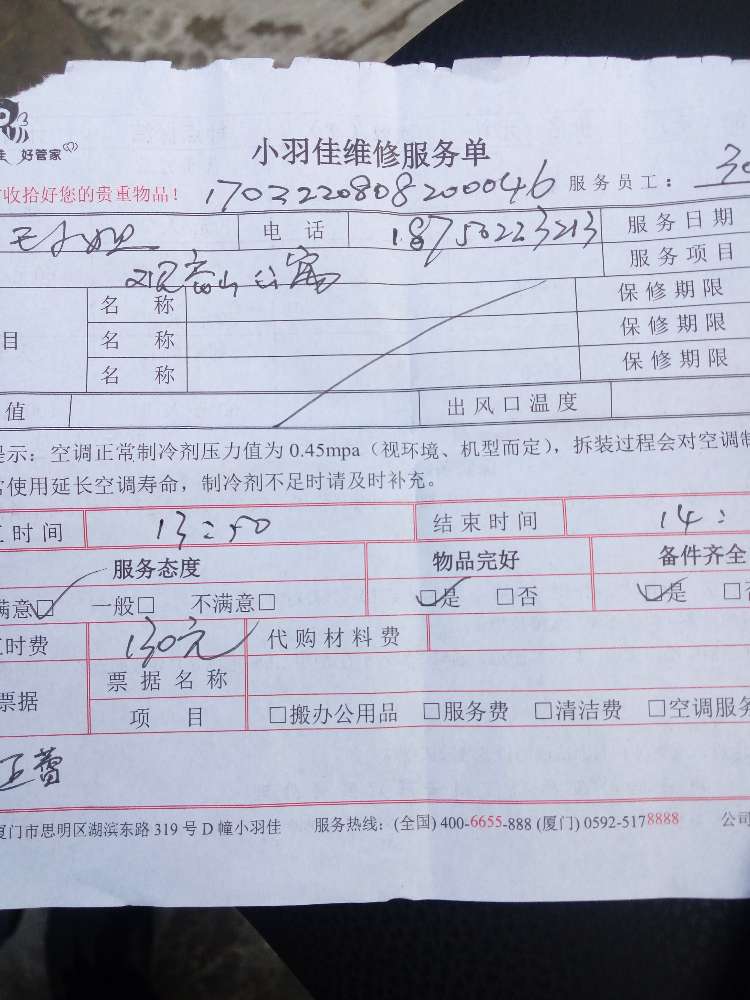 好管家
小羽佳维修服务单
收拾好您的贵重物品! 17032208082000046 服务员工: 30
王小姐 电话 18750223213 服务日期
观音山公寓 服务项目
名称 保修期限
目 名称 保修期限
名称 保修期限
值 出风口温度
示: 空调正常制冷剂压力值为 0.45mpa (视环境、机型而定), 拆装过程会对空调制
常使用延长空调寿命, 制冷剂不足时请及时补充。
工时间 13:50 结束时间 14:
服务态度 物品完好 备件齐全
满意☑ 一般□ 不满意□ ☑是 □否 ☑是 □否
工时费 130元 代购材料费
票据 票据名称
项目 □搬办公用品 □服务费 □清洁费 □空调服务
王蕾
厦门市思明区湖滨东路 319 号 D 幢小羽佳 服务热线: (全国) 400-6655-888 (厦门) 0592-5178888 公司